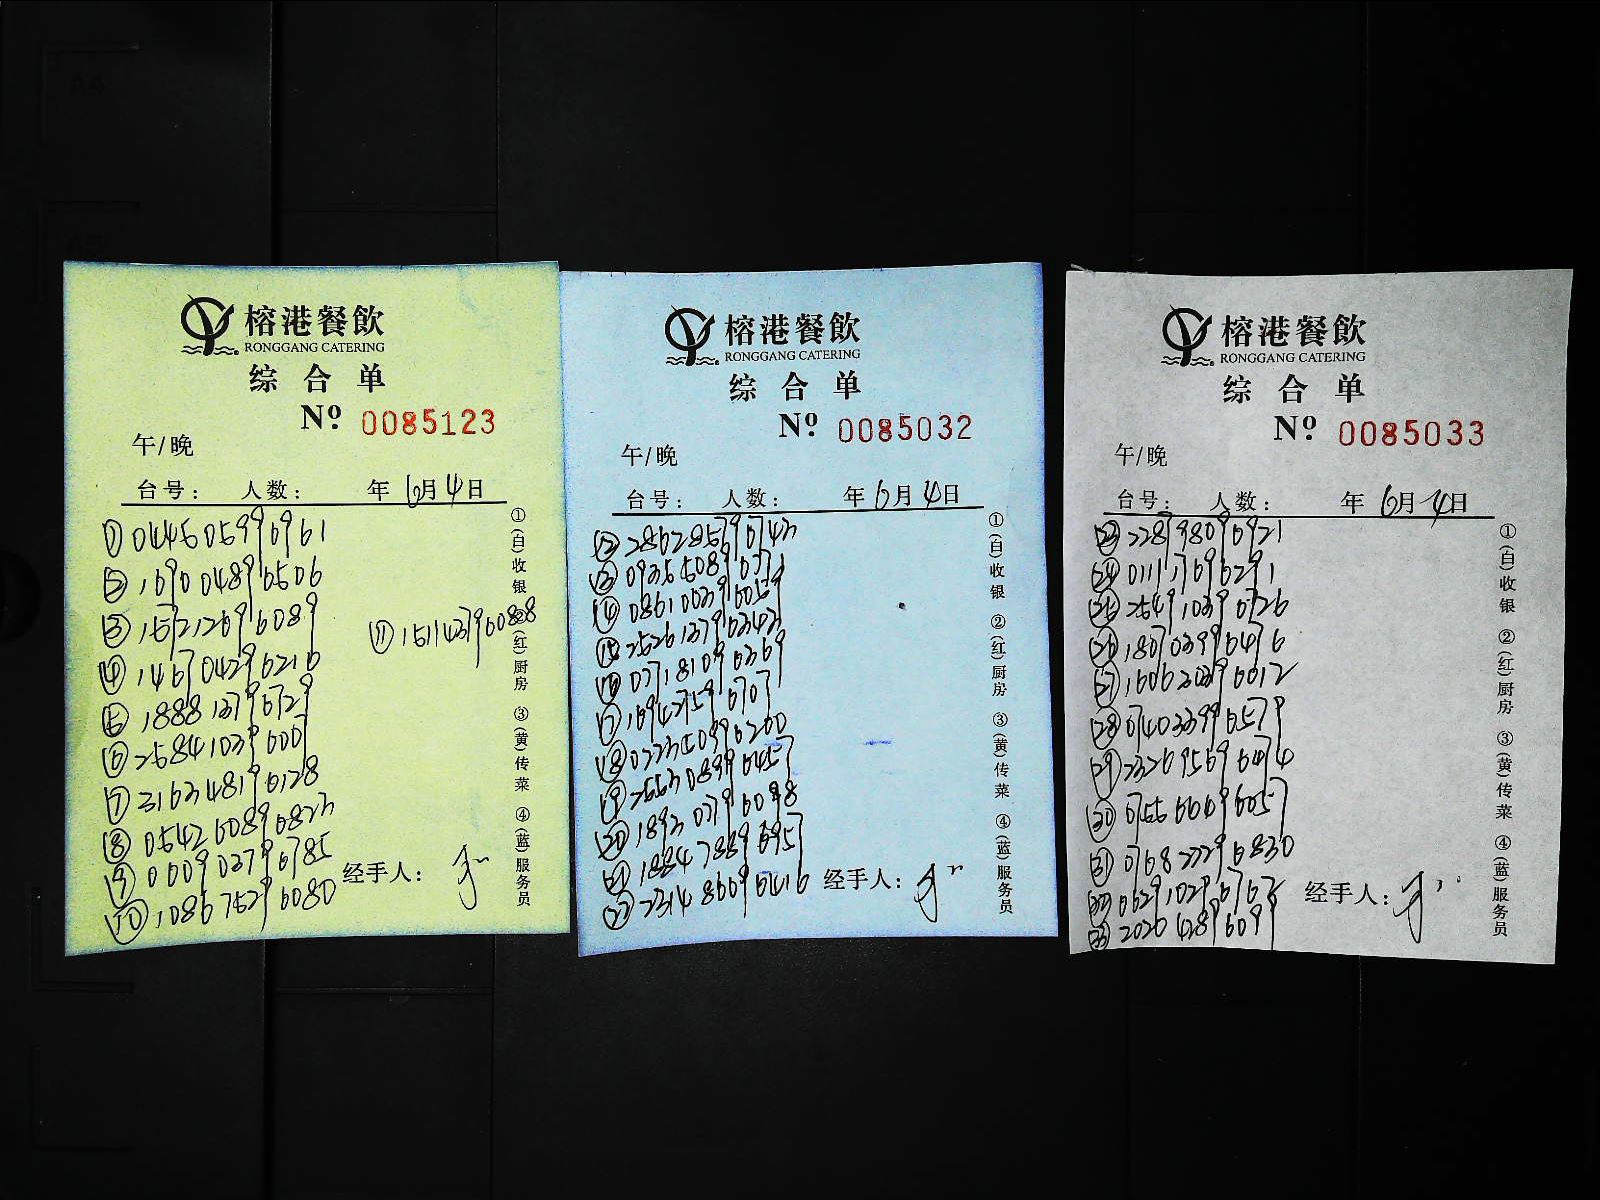 榕港餐飲
RONGGANG CATERING
综合单
Nº 0085123
午/晚
台号： 人数： 年 6月4日
① 044505996961
② 169004896506
③ 157212696089
④ 146704296216
⑤ 188813796729
⑥ 258410396007
⑦ 316348196128
⑧ 054260896823
⑨ 000902796785
⑩ 108675296080
⑪ 1511437960888
经手人：
①(白)收银 ②(红)厨房 ③(黄)传菜 ④(蓝)服务员
榕港餐飲
RONGGANG CATERING
综合单
Nº 0085032
午/晚
台号： 人数： 年 6月4日
⑫ 286285796743
⑬ 093550896371
⑭ 086100396057
⑮ 252613796343
⑯ 077181096369
⑰ 169427596707
⑱ 072350996200
⑲ 255308996457
⑳ 189303796098
㉑ 188478896957
㉒ 231486096416
经手人：
①(白)收银 ②(红)厨房 ③(黄)传菜 ④(蓝)服务员
榕港餐飲
RONGGANG CATERING
综合单
Nº 0085033
午/晚
台号： 人数： 年 6月4日
㉓ 228998096921
㉔ 011117696291
㉕ 254910396726
㉖ 180703996476
㉗ 160620396012
㉘ 074033996579
㉙ 232695696474
㉚ 075560696057
㉛ 076822796830
㉜ 062910296767
㉝ 20204289609
经手人：
①(白)收银 ②(红)厨房 ③(黄)传菜 ④(蓝)服务员